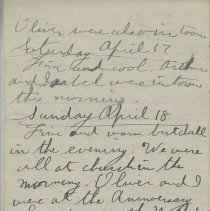 Oliver were also in town
Saturday April 17
Fine and cool. Arthur
and Isabel were in town
this morning.
Sunday April 18
Fine and warm but dull
in the evening. We were
all at church in the
morning. Oliver and I
were at the Anniversary